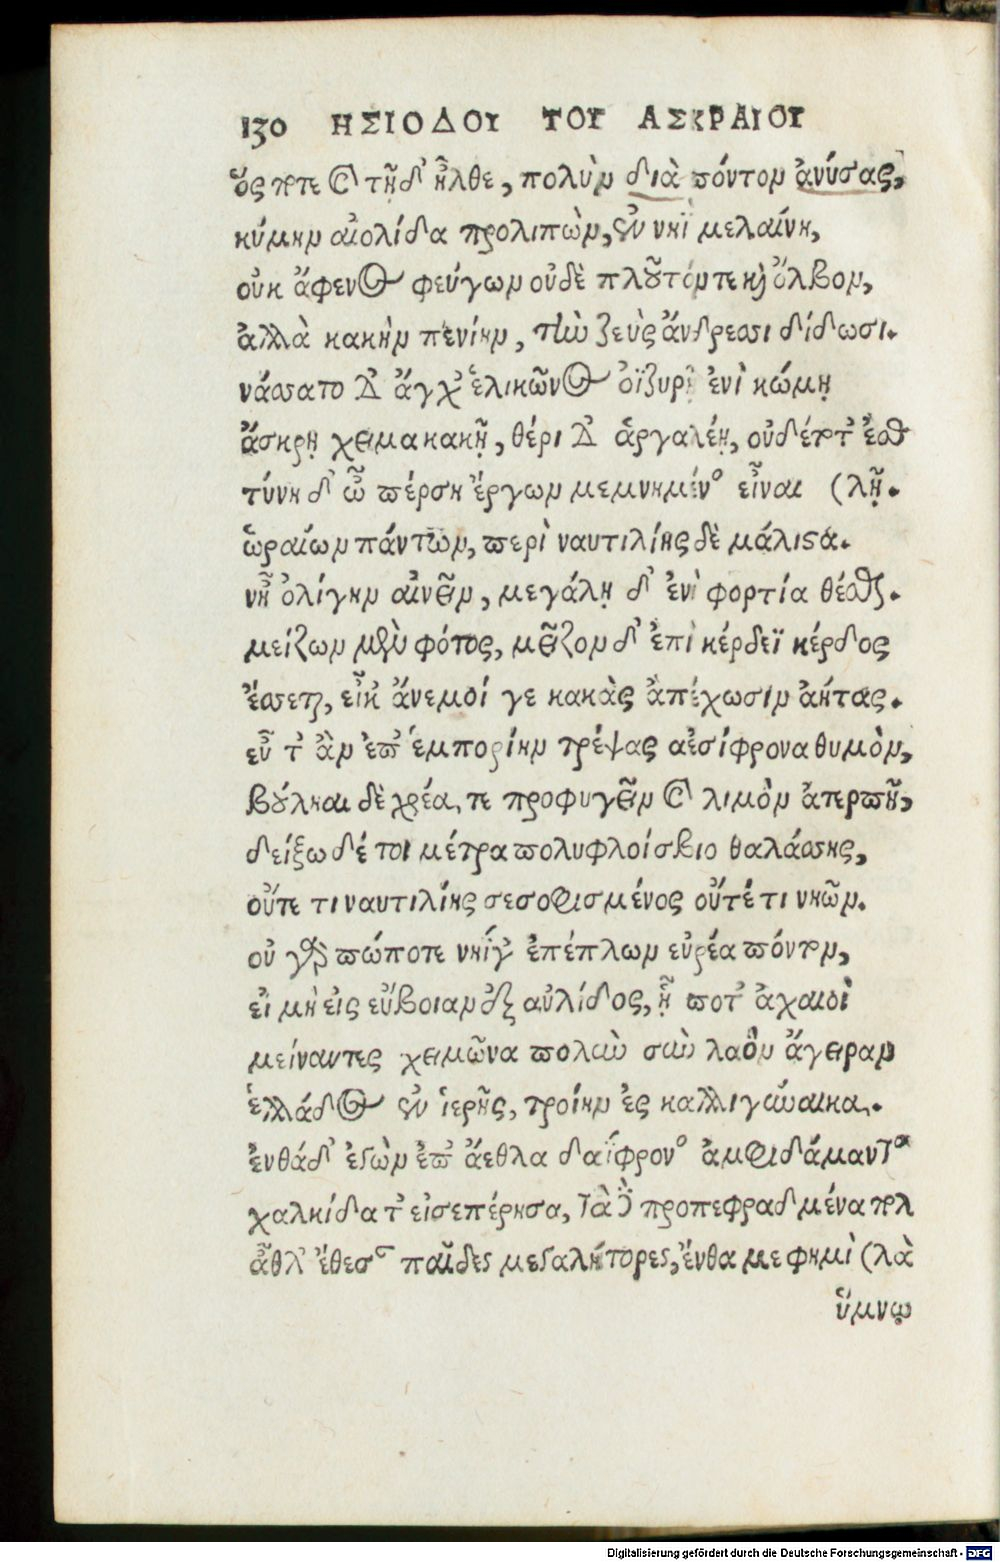 130 ΗΣΙΟΔΟΥ ΤΟΥ ΑΣΚΡΑΙΟΥ
ὅς ποτε καὶ τῇδ' ἦλθε, πολὺν διὰ πόντον ἀνύσας,
κύμην αἰολίδα προλιπὼν, ἐν νηῒ μελαίνη,
οὐκ ἄφενος φεύγων οὐδὲ πλοῦτόν τε καὶ ὄλβον,
ἀλλὰ κακὴν πενίην, τὴν ζεὺς ἄνδρεσσι δίδωσι.
νάσσατο δ' ἄγχ' ἑλικῶνος ὀϊζυρῇ ἐνὶ κώμῃ
ἄσκρῃ χεῖμα κακῇ, θέρει δ' ἀργαλέῃ, οὐδέποτ' ἐσθ
τύνη δ' ὦ πέρση ἔργων μεμνημένος εἶναι (λῇ.
ὡραίων πάντων, περὶ ναυτιλίης δὲ μάλιστα.
νῆ' ὀλίγην αἰνεῖν, μεγάλῃ δ' ἐνὶ φορτία θέσθαι.
μείζων μὲν φόρτος, μεῖζον δ' ἐπὶ κέρδεϊ κέρδος
ἔσσεται, εἴκ' ἄνεμοί γε κακὰς ἀπέχωσιν ἀήτας.
εὖ τ' ἂν ἐπ' ἐμπορίην τρέψας ἀεσίφρονα θυμὸν,
βούληαι δὲ χρέα τε προφυγεῖν καὶ λιμὸν ἀτερπῆ,
δείξω δέ τοι μέτρα πολυφλοίσβιο θαλάσσης,
οὔτε τι ναυτιλίης σεσοφισμένος οὔτέ τι νηῶν.
οὐ γάρ πώποτε νηΐγ' ἐπέπλων εὐρέα πόντον,
εἰ μὴ εἰς εὔβοιαν ἐξ αὐλίδος, ᾗ ποτ' ἀχαιοὶ
μείναντες χειμῶνα πολὺν σὺν λαὸν ἄγειραν
ἑλλάδος ἐν ἱερῆς, τροίην ἐς καλλιγύναικα.
ἐνθάδ' ἐγὼν ἐπ' ἄεθλα δαΐφρονος ἀμφιδάμαντος
χαλκίδα τ' εἰσεπέρησα, τὰ δὲ προπεφραδμένα πολ
ἆθλ' ἔθεσαν παῖδες μεγαλήτορες, ἔνθα με φημὶ (λὰ
ὕμνῳ
Digitalisierung gefördert durch die Deutsche Forschungsgemeinschaft - DFG